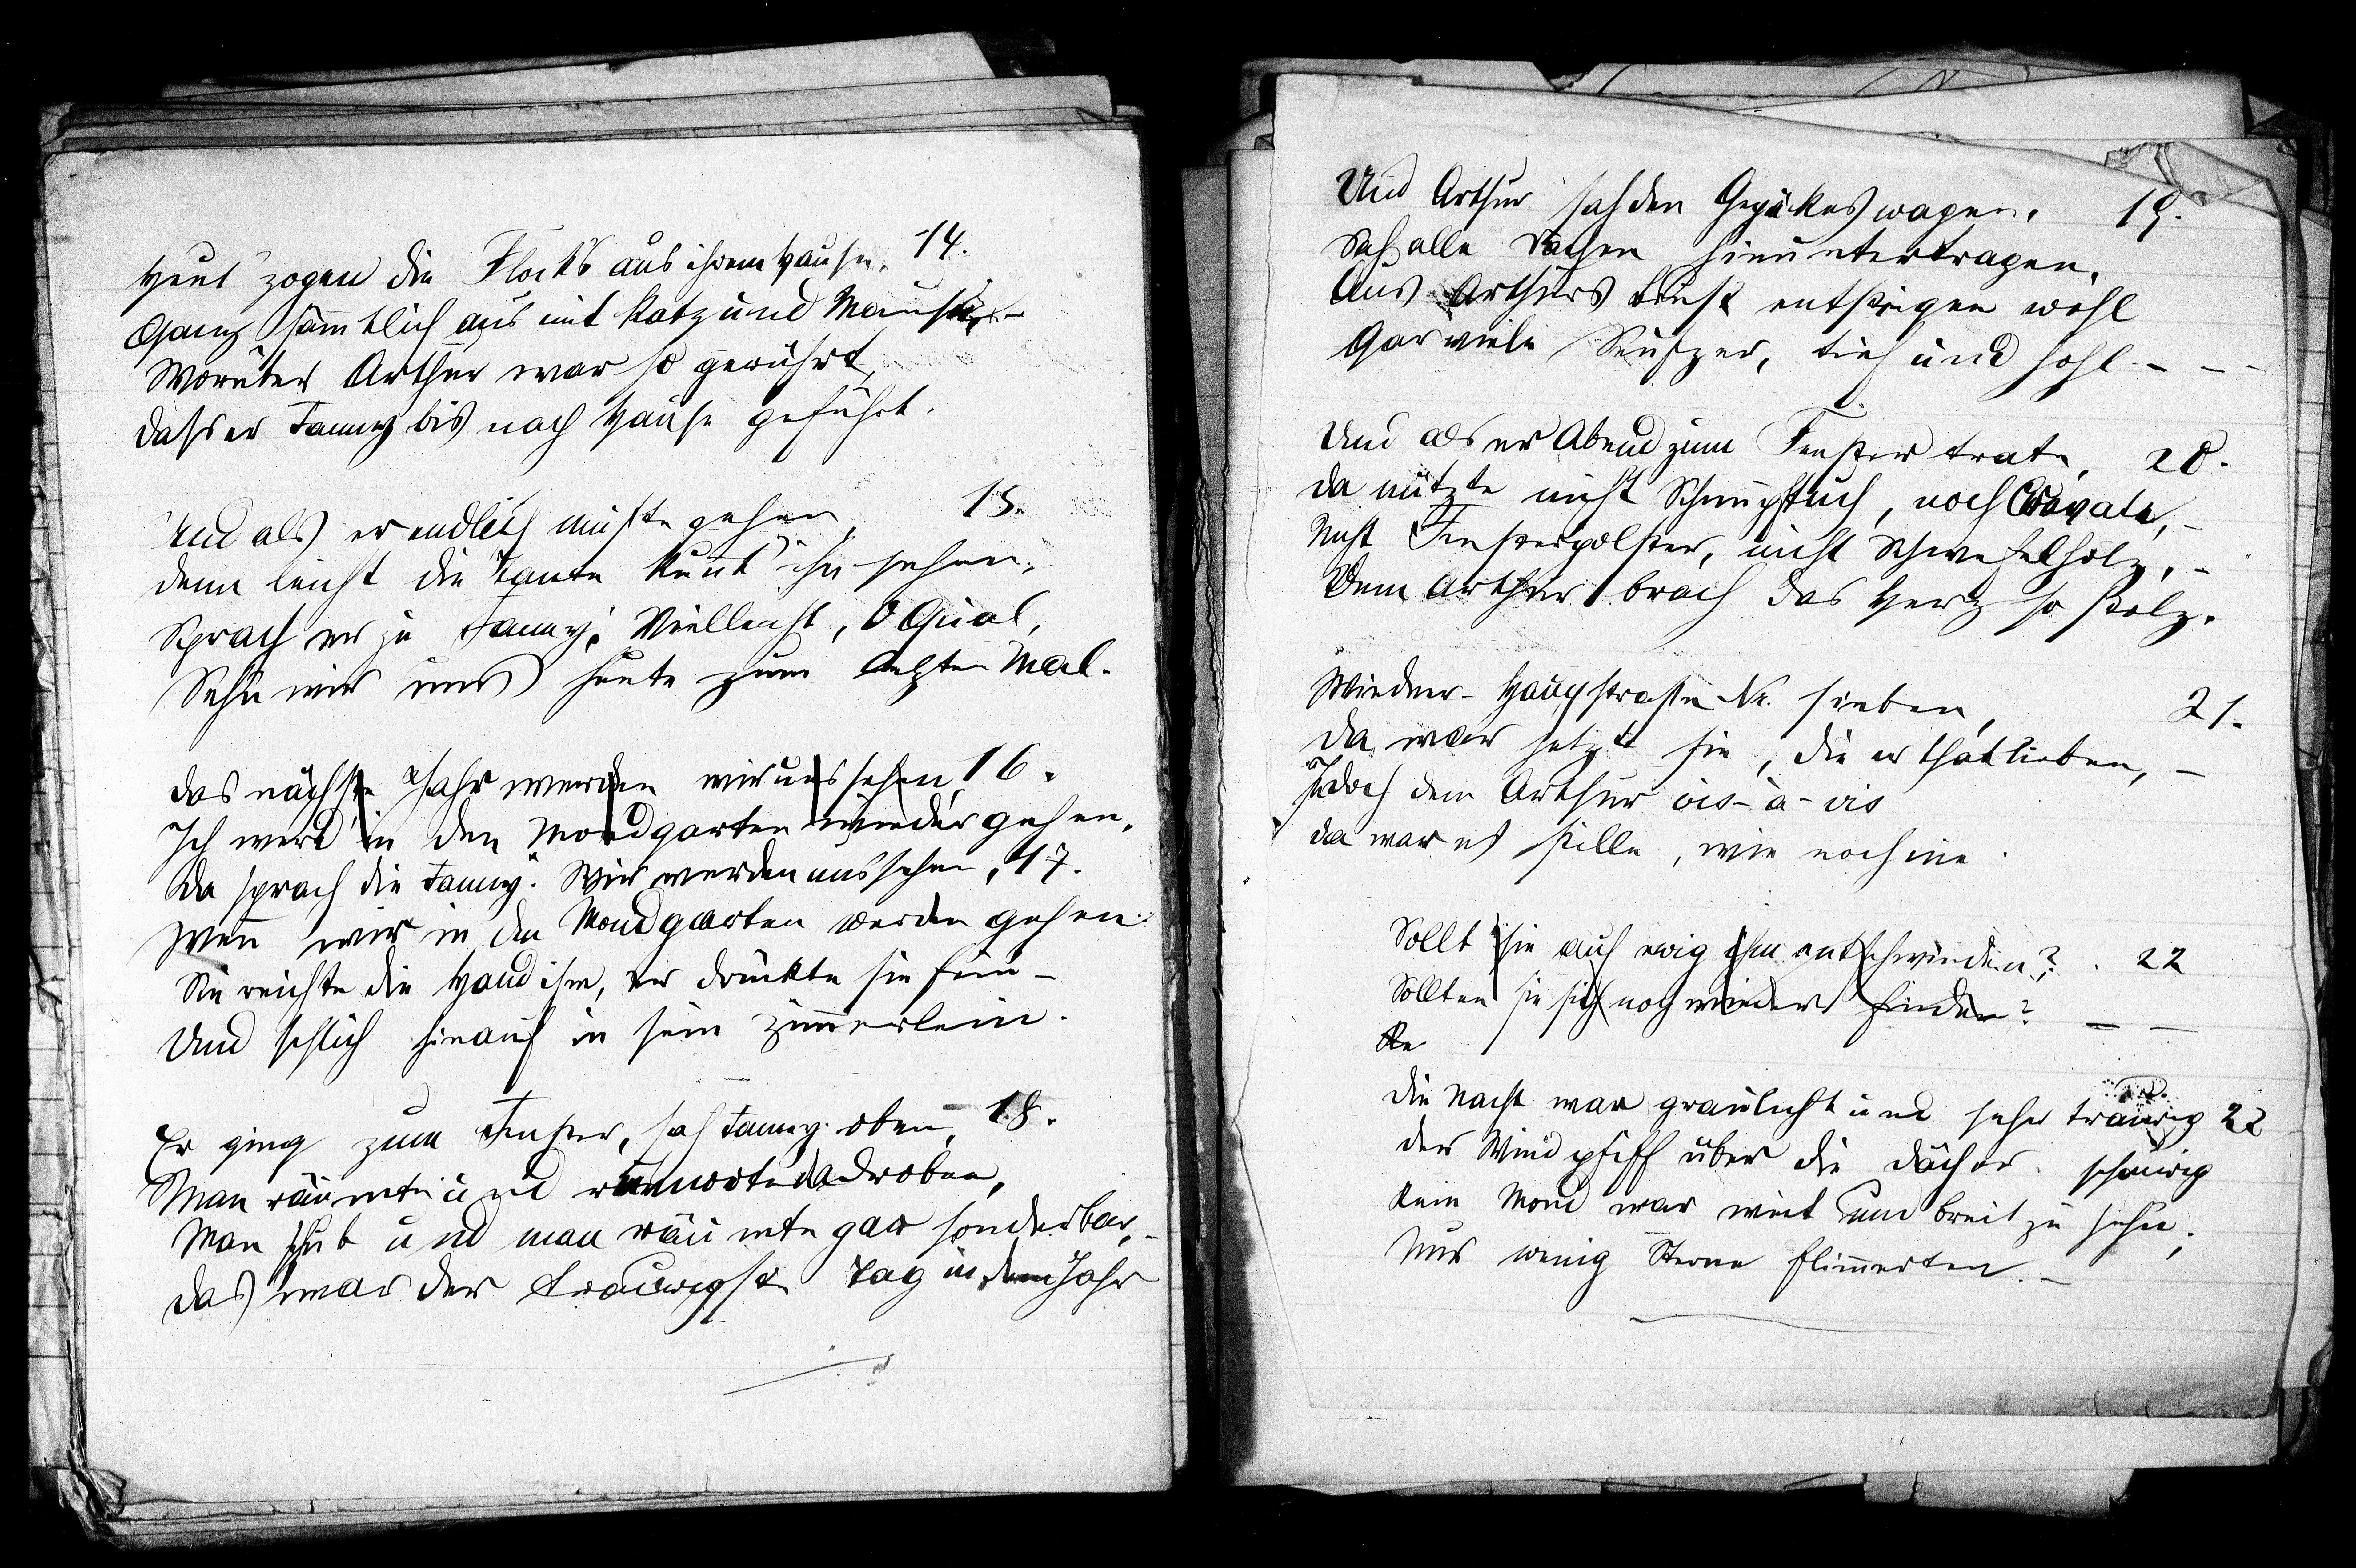 Heut' zogen die Flock's aus ihrem Hause, 14.
Ganz sämmtlich aus mit Katz und Mause, –
Worüber Arthur war so gerührt,
dass er Fanny bis nach Hause geführt.
Und als er endlich musste gehen, 15.
denn leicht die Tante kunnt' ihn sehen,
Sprach er zu Fanny: Vielleicht, O Qual,
Sehn wir uns heute zum letzten Mal.
das nächste Jahr werden wir uns sehen 16.
Ich werd' in den Mondgarten wieder gehen.
Da sprach die Fanny: Wir werden uns sehen, 17.
Wenn wir in den Mondgarten werden gehen.
Sie reichte die Hand ihm, er drückte sie fein –
Und schlich hinauf in sein Zimmerlein.
Er ging zum Fenster, sah Fanny oben, 18.
Man räumte und rumorte da droben,
Man schub und man räumte gar sonderbar, –
das war der traurigste Tag in dem Jahr
Und Arthur sah den Gepäckeswagen, 19.
Sah alle Sachen hinuntertragen.
Aus Arthurs Brust entstiegen wohl
Gar viele Seufzer, tief und hohl – – –
Und als er Abend zum Fenster trate, 20.
da nützte nicht Schnupftuch, noch Cravate, –
Nicht Fensterpolster, nicht Schwefelholz, –
Dem Arthur brach das Herz so stolz.
Wiedner-Hauptstrasse Nr. sieben, 21.
Da war jetzt sie, die er that lieben, –
Jedoch dem Arthur vis-à-vis
da war es stille, wie noch nie.
Sollt sie auf ewig ihm entschwinden? 22
Sollten sie sich noch wieder finden? – –
die Nacht war graulicht und sehr traurig 22
der Wind pfiff über die Dächer schaurig
Kein Mond war weit und breit zu sehn,
Nur wenig Sterne flimmerten. –